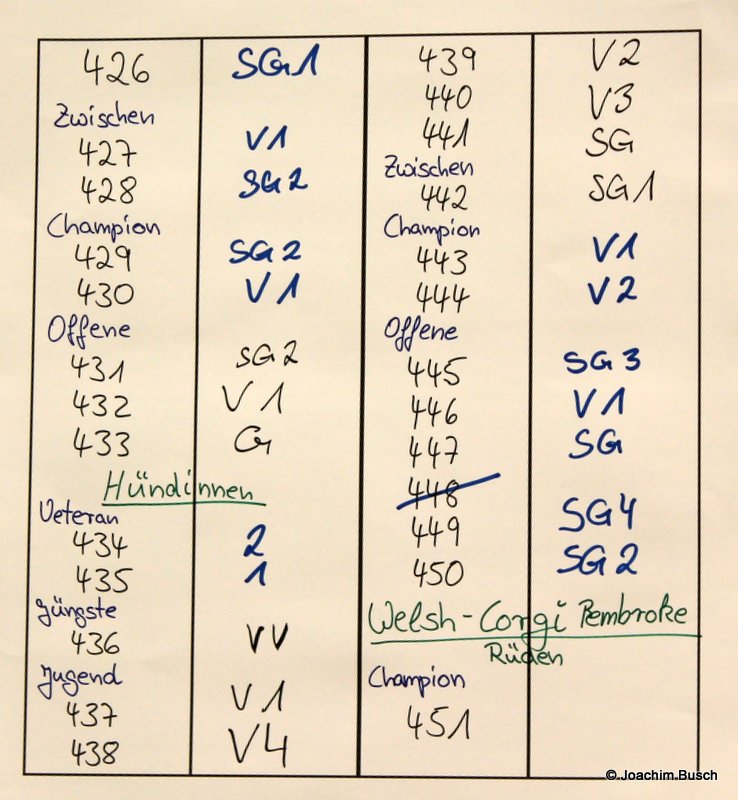 426 SG1
Zwischen
427 V1
428 SG2
Champion
429 SG2
430 V1
Offene
431 SG2
432 V1
433 G
Hündinnen
Veteran
434 2
435 1
Jüngste
436 VV
Jugend
437 V1
438 V4
439 V2
440 V3
441 SG
Zwischen
442 SG1
Champion
443 V1
444 V2
Offene
445 SG3
446 V1
447 SG
448
449 SG4
450 SG2
Welsh-Corgi Pembroke
Rüden
Champion
451
© Joachim Busch